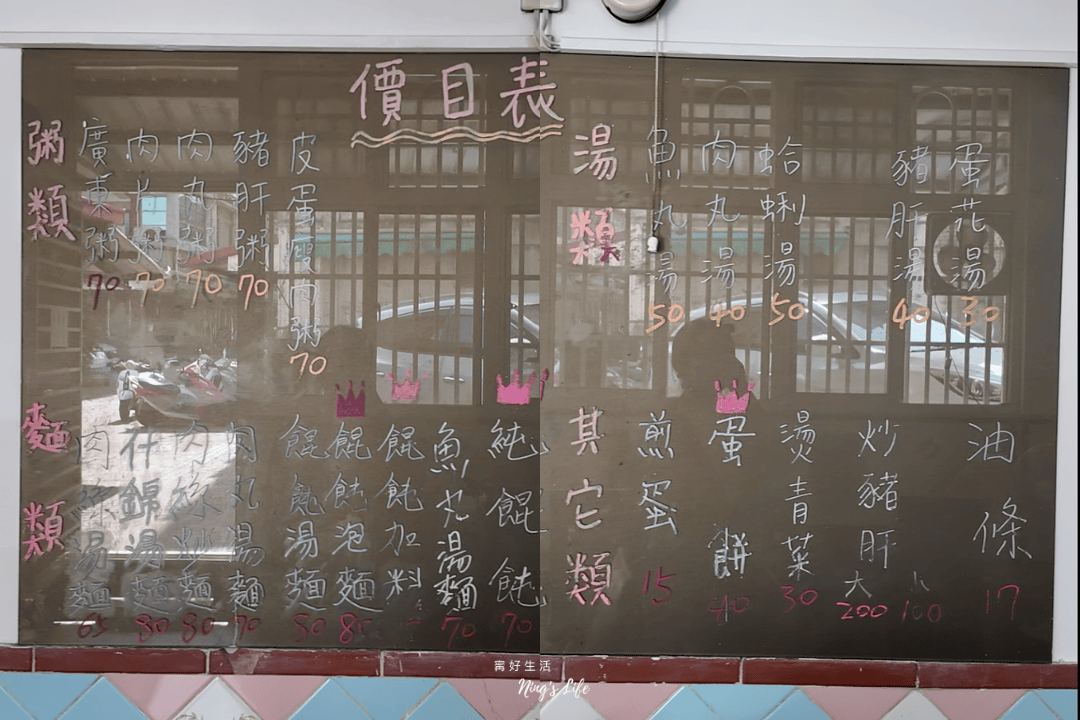 價目表
粥類
廣東粥 70
肉片粥 70
肉丸粥 70
豬肝粥 70
皮蛋瘦肉粥 70
湯類
魚丸湯 50
肉丸湯 40
蛤蜊湯 50
豬肝湯 40
蛋花湯 30
麵類
肉絲湯麵 65
什錦湯麵 80
肉絲炒麵 80
肉丸湯麵 70
餛飩湯麵
餛飩泡麵 80
餛飩加料
魚丸湯麵 70
純餛飩 70
其它類
煎蛋 15
蛋餅 40
燙青菜 30
炒豬肝 大200 小100
油條 17
寗好生活
Ning's Life